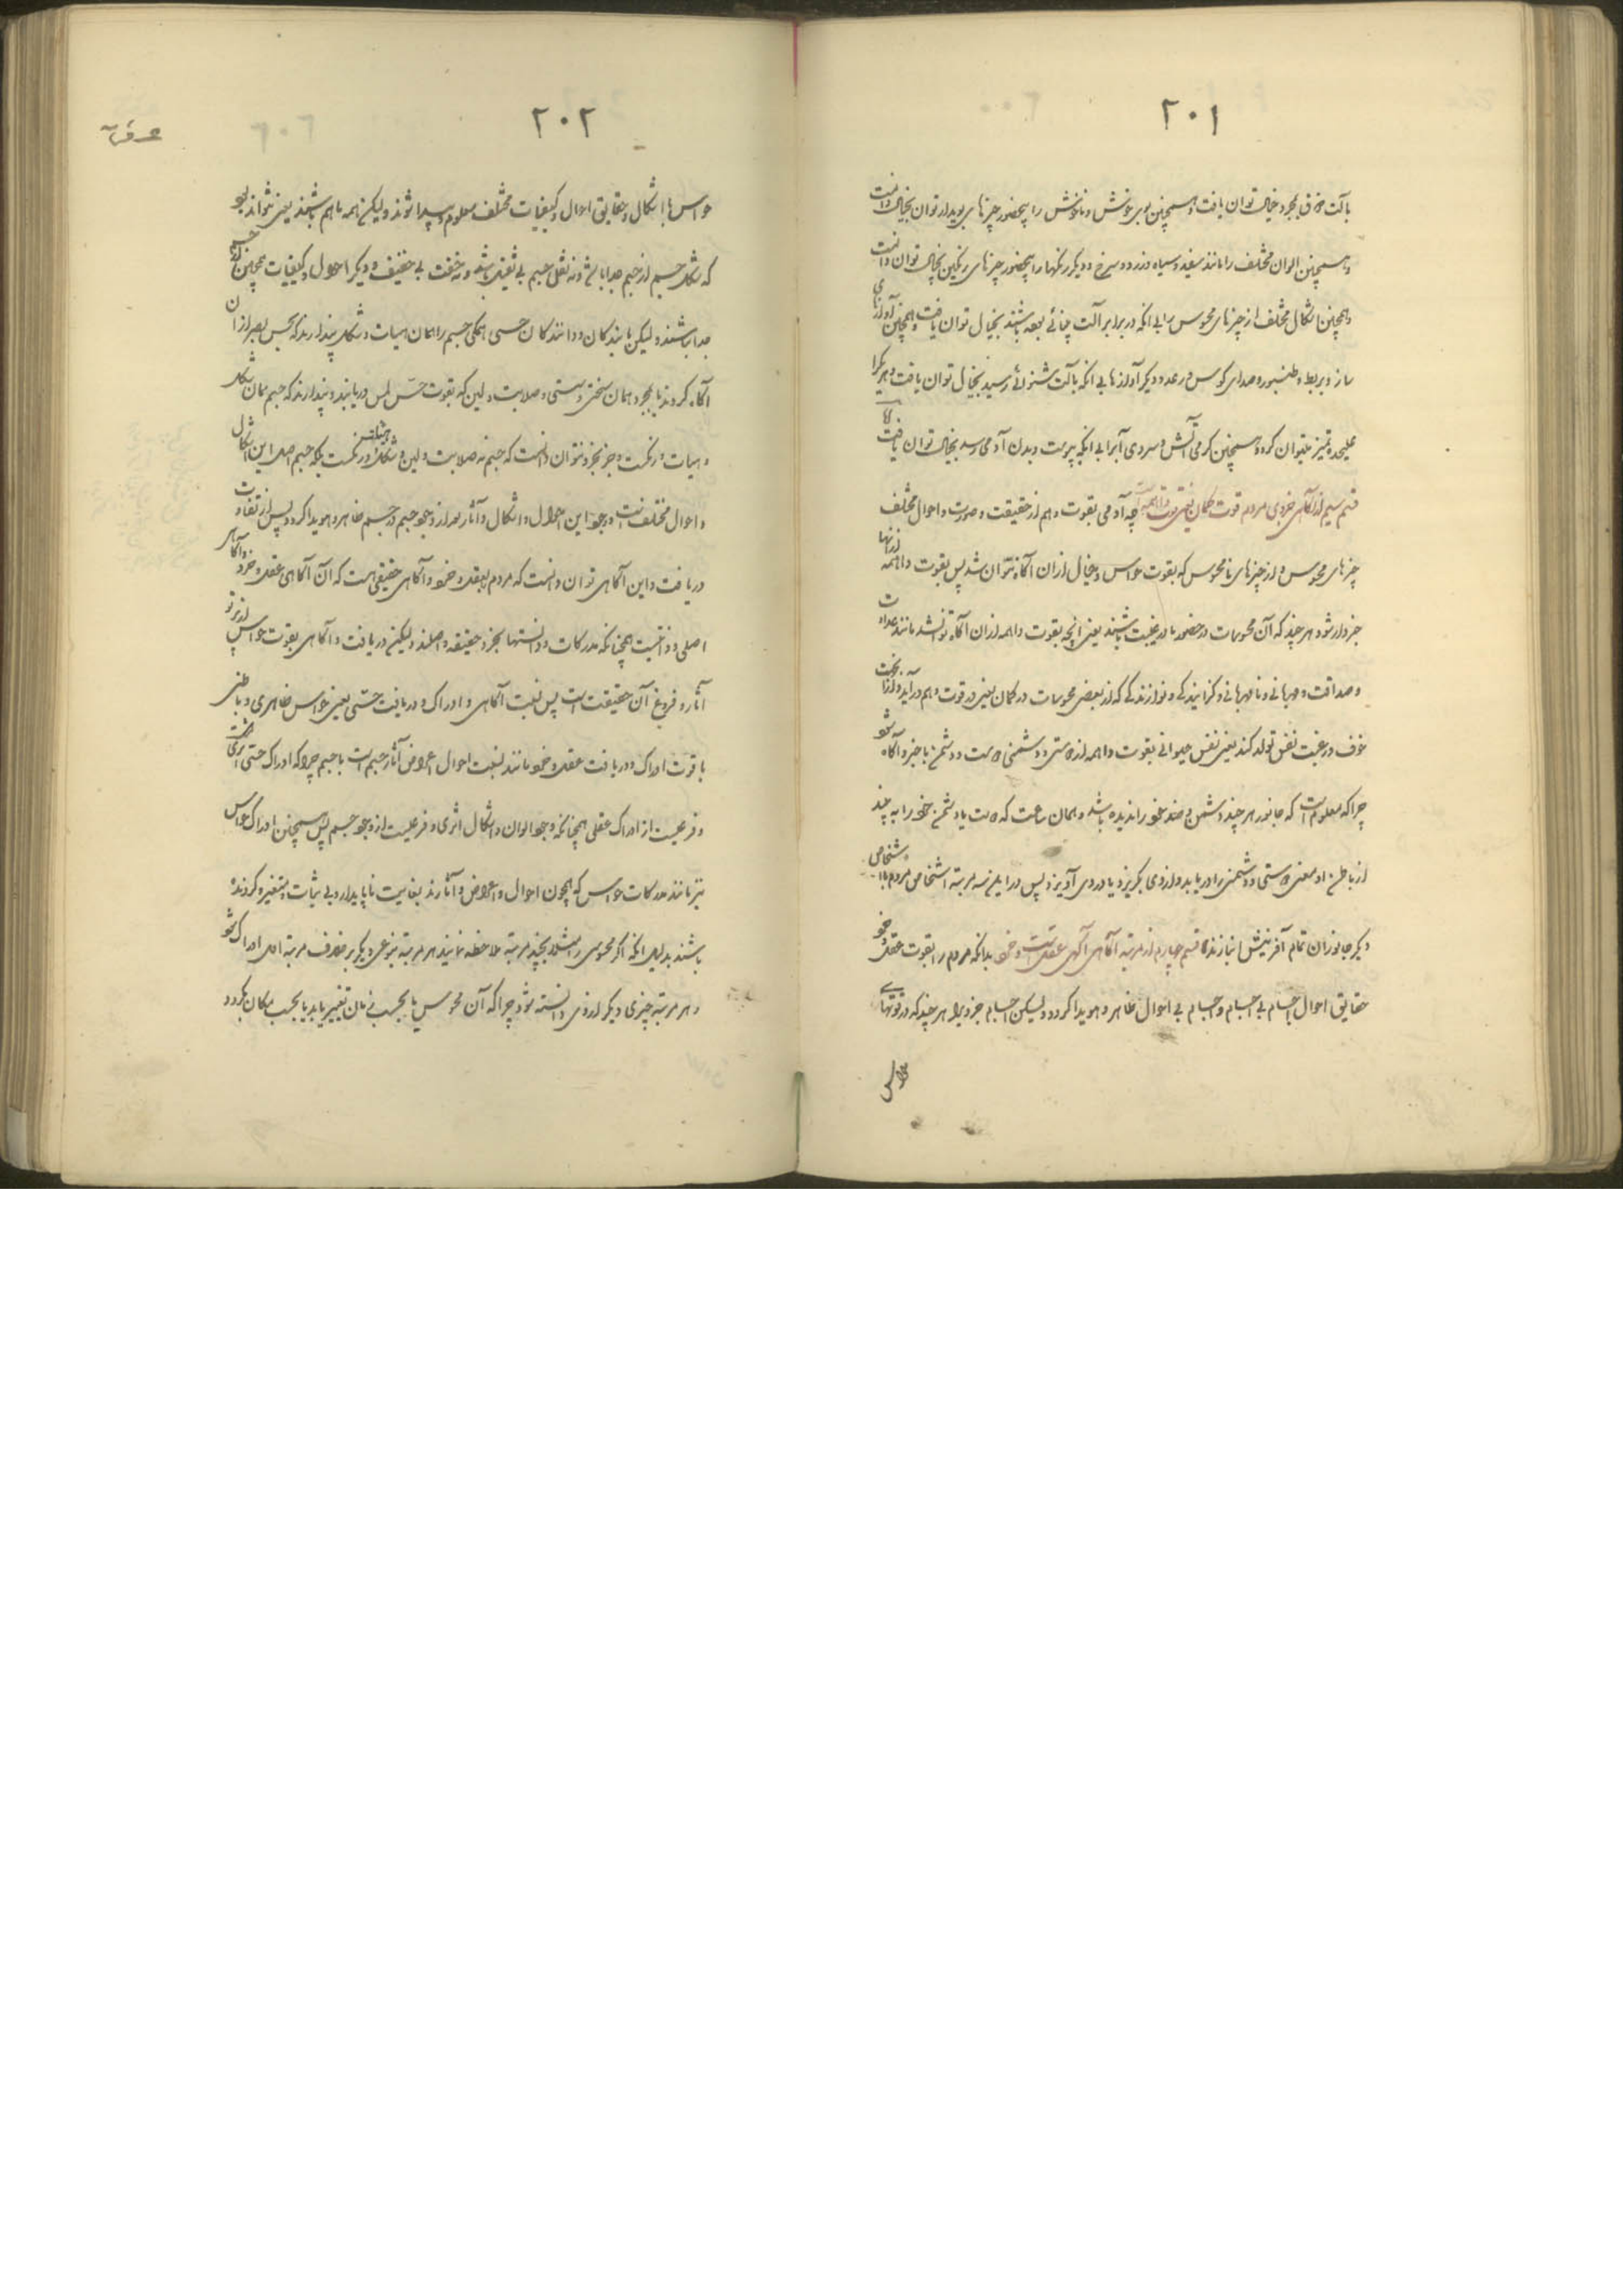 ۲۰۱
بآلت ذوق بمجرد خیال توان یافت و همچنین بوی خوش و ناخوش را بیحضور چیزهای بویدار توان بخیال دانست
و همچنین الوان مختلف را مانند سفید و سیاه و زرد و سرخ و دیگر رنگها را بیحضور چیزهای رنگین بخیال توان دانست
و همچنین اشکال مختلف از چیزهای محسوس را بی انکه در برابر آلت بینائی بوده باشند بخیال توان یافت و همچنین آوازهای
ساز و بربط و طنبور و صدای کوس و رعد و دیگر آوازها بی انکه بآلت شنوائی رسید بخیال توان یافت و هر یکرا
علیحده تمیز بتوان کرد و همچنین گرمی آتش و سردی آبرا بی انکه بپوست و بدن آدمی رسد بخیال توان یافت
قسم سیم از آگاهی جزوی مردم قوت گمان یعنی قوت واهمه است چه آدمی بقوت وهم از حقیقت و صورت و احوال مختلف
چیزهای محسوس و از چیزهای نامحسوس که بقوت حواس و بخیال ازان آگاه نتوان شد پس بقوت واهمه ازانها
خبردار شود هر چند که آن محسوسات در حضور یا در غیبت باشند یعنی انچه بقوت واهمه ازان آگاه توانشد مانند عداوت
و صداقت و مهربانی و نامهربانی و گزایندگی و نوازندگی که از بعضی محسوسات در گمان یعنی در قوت وهم درآید و ازان
خوف و رغبت نفس تولد کند یعنی نفس حیوانی بقوت واهمه از دوستی و دشمنی دوست و دشمن باخبر و آگاه شود
چرا که معلومست که جانور هر چند دشمن و ضد خود را ندیده باشد و همان ساعت که دوست یا دشمن خود را به بیند
از باطن او معنی دوستی و دشمنی را دریابد و ازوی بگریزد یا در وی آویزد پس در این سه مرتبه اشخاص مردم با اشخاص
دیگر جانوران تمام آفرینش انبازند قسم چهارم از مرتبه آگاهی آگهی عقلست و خرد بدانکه مردم را بقوت عقل و خرد
حقایق احوال اجسام بی اجسام و اجسام بی احوال ظاهر و هویدا گردد و لیکن اجسام جزویرا هر چند که در قوتهای
حواس
۲۰۲
حواس با اشکال و حقایق احوال و کیفیات مختلف معلوم و پیدا شوند و لیکن همه باهم باشند یعنی نتواند بود
که شکل جسم از جسم جدا باشد و نه ثقل جسم بی ثقیل باشد و نه خفت بی خفیف و دیگر احوال و کیفیات همچنین از جسم
جدا باشند و لیکن یابندگان و دانندگان حسی همگی جسم را همان هیات و شکل پندارند که بحس بصر ازان
آگاه گردند یا بمجرد همان سختی و سستی و صلابت و لین که بقوت حس لمس دریابند و پندارند که جسم همان شکل
و هیات و رنگست و جز بخرد نتوان دانست که جسم نه صلابت و لین و شکل و رنگست بلکه جسم اصل این اشکال
و احوال مختلف است و وجود این احوال و اشکال و آثار بعد از وجود جسم در جسم ظاهر و هویدا گردد پس از تفاوت
دریافت و این آگاهی توان دانست که مردم را بعقل و خرد و آگاهی حقیقی است که آن آگاهی عقل و خرد و آگاهی
اصلی و ذاتیست همچنانکه مدرکات و دانستهای بخرد حقیقه و اصلند و لیکن دریافت و آگاهی بقوت حواس از پرتو
آثار و فروغ آن حقیقت است پس نسبت آگاهی و ادراک و دریافت حسی یعنی حواس ظاهری و باطنی
با قوت ادراک و دریافت عقل و خرد مانند نسبت احوال اعراض آثار جسم است با جسم چرا که ادراک حسی اثری
و فرعیست از ادراک عقلی همچنانکه وجود الوان و اشکال اثری و فرعیست از وجود جسم پس همچنین ادراک حواس
نیز مانند مدرکات حواس که همچون احوال و اعراض و آثارند بغایت ناپایدار و بی ثبات و متغیره گردنده
باشند بدلیل انکه اگر محسوسی را مثلا بچند مرتبه ملاحظه نمایند هر مرتبه بنوعی دیگر بر خلاف مرتبه اول ادراک شود
و هر مرتبه چیزی دیگر ازوی دانسته شود چرا که آن محسوس یا بحسب زمان تغییر یابد یا بحسب مکان گردد